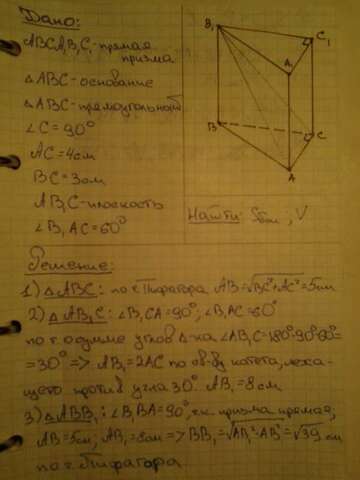 Дано:
ABCA₁B₁C₁-прямая
призма
△ABC-основание
△ABC-прямоугольный
∠C=90°
AC=4см
BC=3см
AB₁C-плоскость
∠B₁AC=60°
B₁
C₁
A₁
B
C
A
Найти: Sбок, V
Решение:
1) △ABC: по т. Пифагора AB=√BC²+AC²=5см
2) △AB₁C: ∠B₁CA=90°; ∠B₁AC=60°
по т. о сумме углов △-ка ∠AB₁C=180°-90°-60°=
=30° => AB₁=2AC по св-ву катета, лежа-
щего против угла 30°. AB₁=8см
3) △ABB₁: ∠B₁BA=90°, т.к. призма прямая,
AB=5см; AB₁=8см => BB₁=√AB₁²-AB²=√39 см
по т. Пифагора